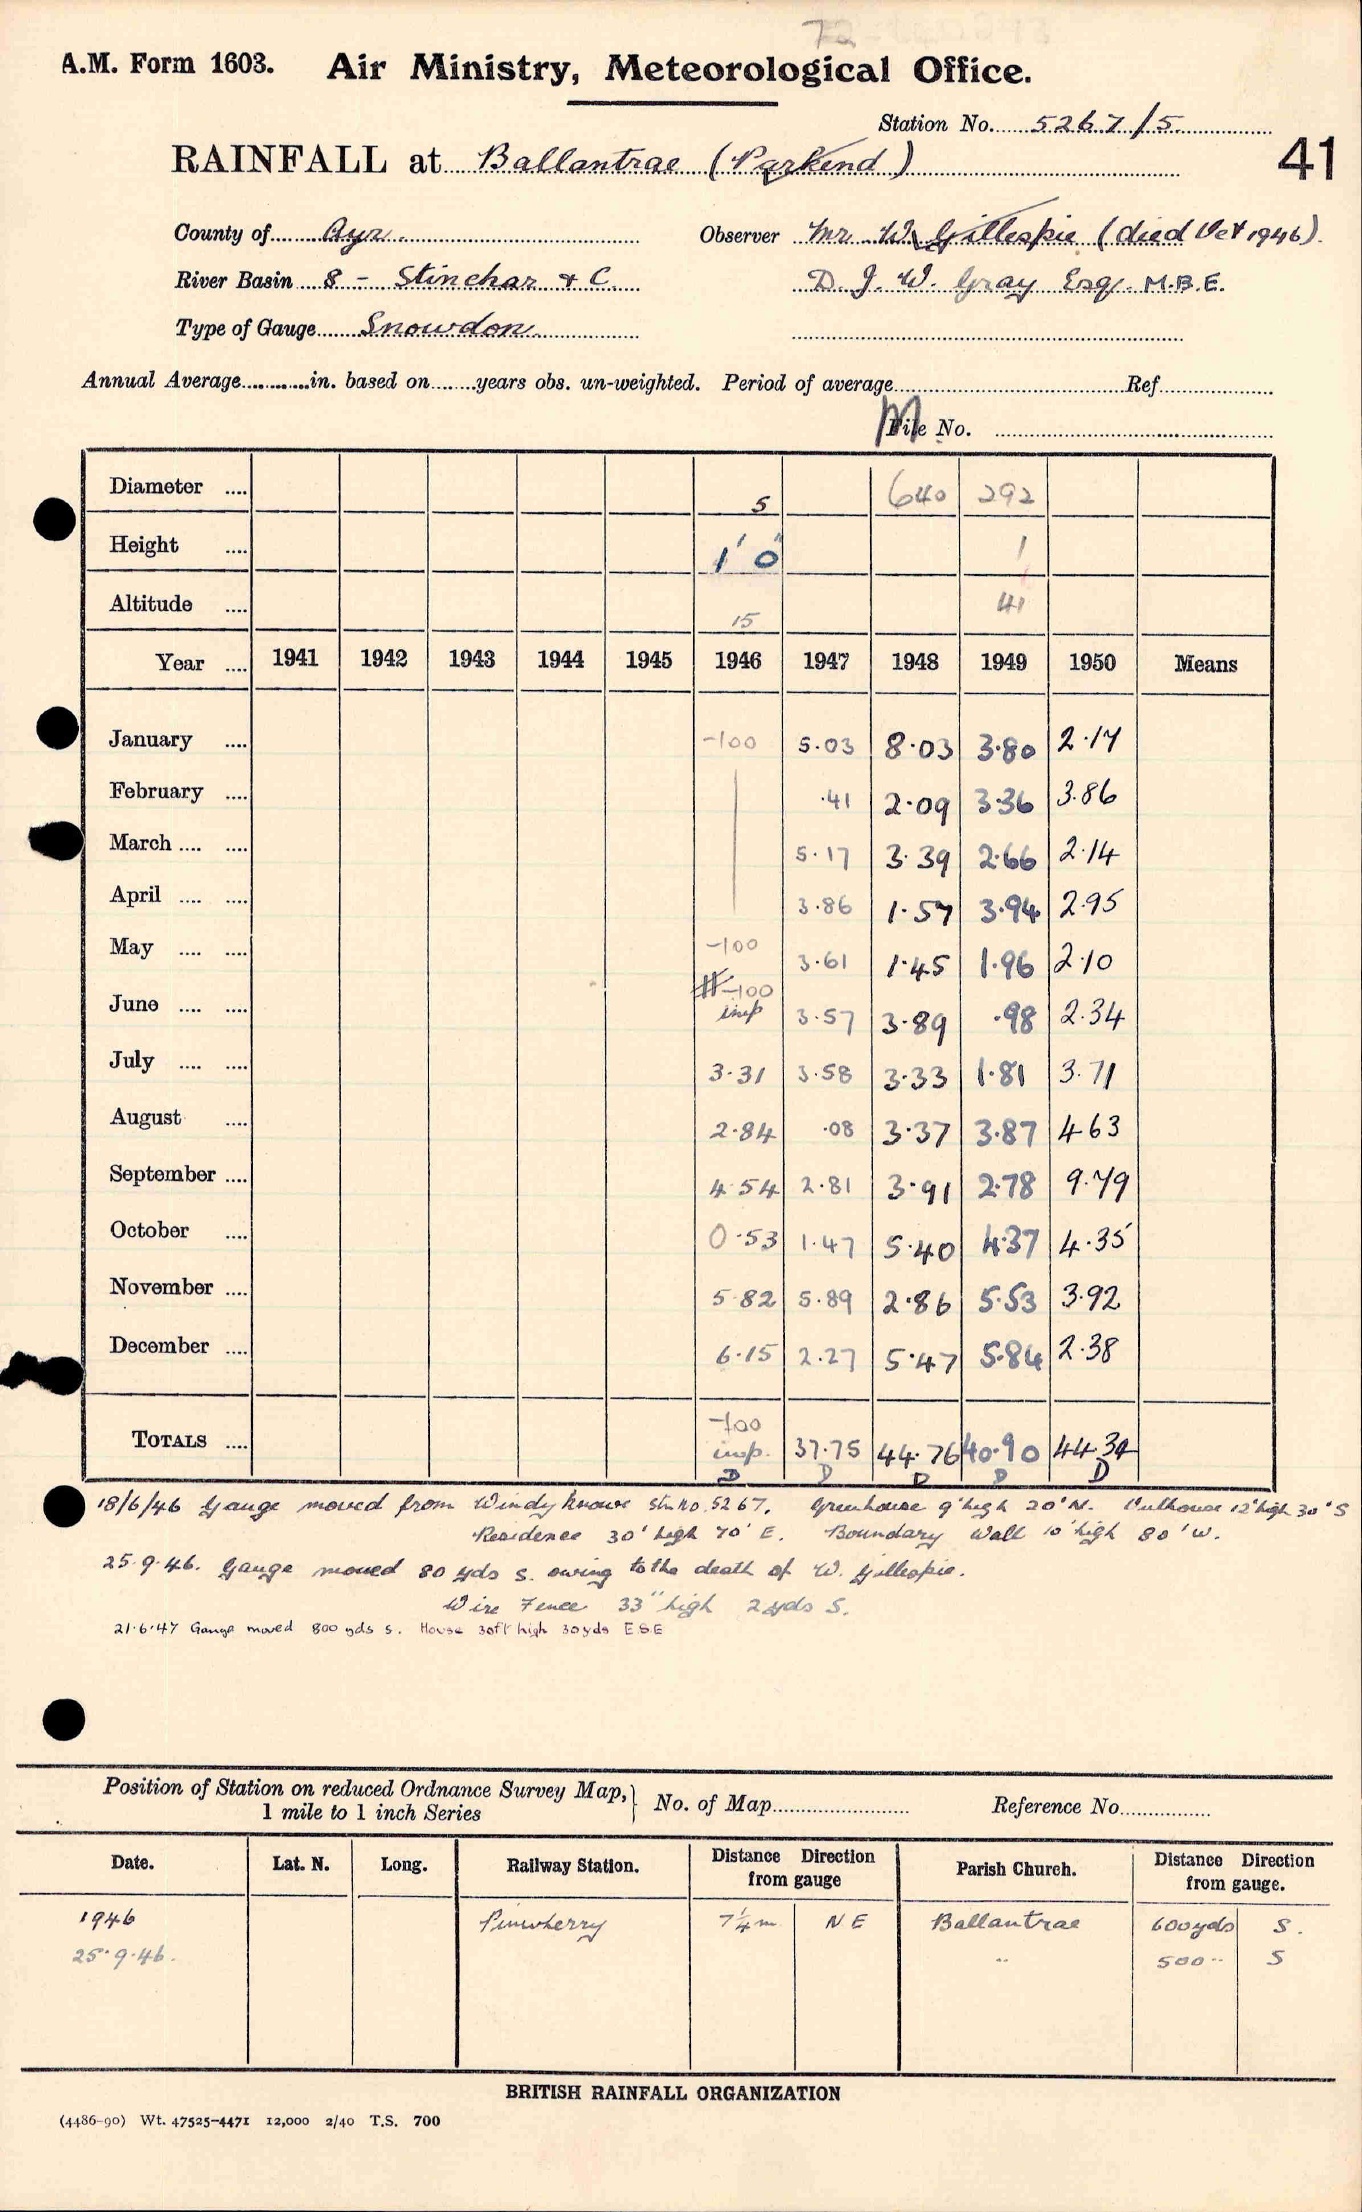 A.M. Form 1603. Air Ministry, Meteorological Office.
Station No. 5267/5.
RAINFALL at Ballantrae (Parkend) 41
County of Ayr. Observer Mr W. Gillespie (died Oct 1946).
River Basin 8 - Stinchar & C. D. J. W. Gray Esq. M.B.E.
Type of Gauge Snowdon
Annual Average............in. based on........years obs. un-weighted. Period of average........ Ref........
M File No.
Diameter .... 5 640 292
Height .... 1' 0" 1
Altitude .... 15 41
Year .... 1941 1942 1943 1944 1945 1946 1947 1948 1949 1950 Means
January .... -100 5.03 8.03 3.80 2.17
February .... .41 2.09 3.36 3.86
March .... .... 5.17 3.39 2.66 2.14
April .... .... 3.86 1.57 3.94 2.95
May .... .... -100 3.61 1.45 1.96 2.10
June .... .... -100 imp 3.57 3.89 .98 2.34
July .... .... 3.31 3.58 3.33 1.81 3.71
August .... 2.84 .08 3.37 3.87 4.63
September .... 4.54 2.81 3.91 2.78 9.79
October .... 0.53 1.47 5.40 4.37 4.35
November .... 5.82 5.89 2.86 5.53 3.92
December .... 6.15 2.27 5.47 5.84 2.38
TOTALS .... -100 imp. 37.75 44.76 40.90 44.34
D D D D D
18/6/46 Gauge moved from Windy Knowe Stn no 5267. Greenhouse 9' high 20' N. Outhouse 12' high 30' S
Residence 30' high 70' E. Boundary Wall 10' high 80' W.
25.9.46. Gauge moved 80 yds S. owing to the death of W. Gillespie.
Wire Fence 33" high 2 yds S.
21.6.47 Gauge moved 800 yds S. House 30ft high 30 yds ESE
Position of Station on reduced Ordnance Survey Map, 1 mile to 1 inch Series } No. of Map........ Reference No........
Date. Lat. N. Long. Railway Station. Distance Direction from gauge Parish Church. Distance Direction from gauge.
1946 Pinwherry 7¼ m NE Ballantrae 600 yds S.
25.9.46. " 500 " S
BRITISH RAINFALL ORGANIZATION
(4486-90) Wt. 47525-4471 12,000 2/40 T.S. 700